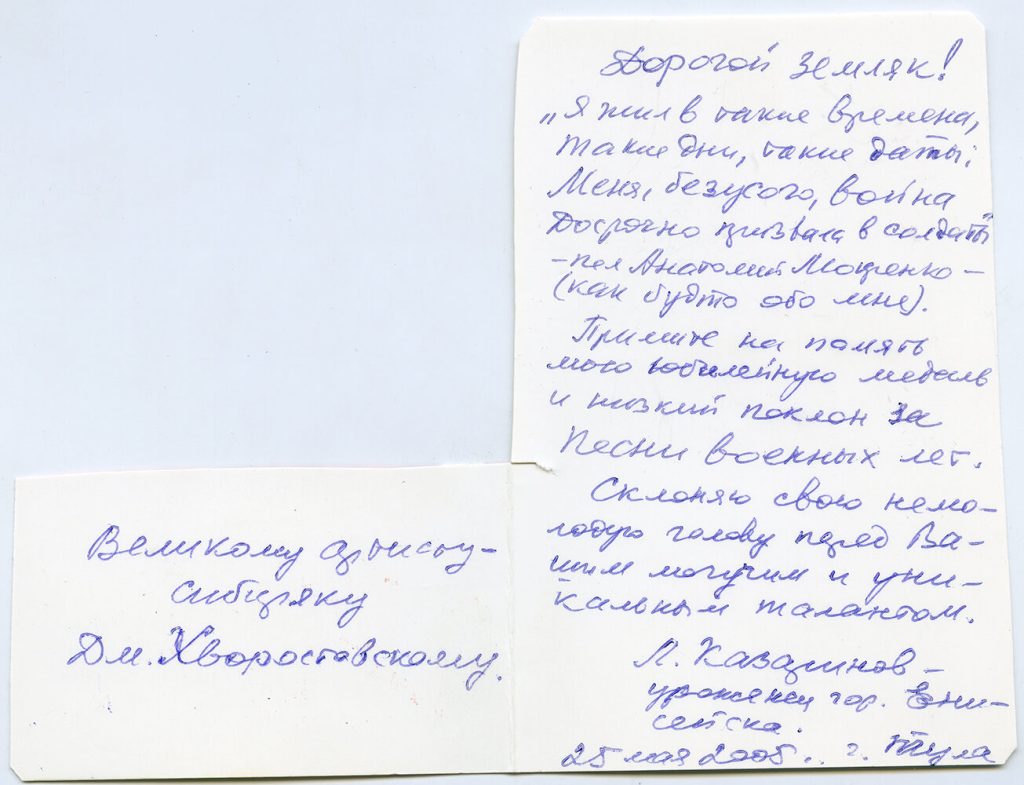 Великому артисту-
сибиряку
Дм. Хворостовскому.
Дорогой земляк!
„Я жил в такие времена,
Такие дни, такие даты:
Меня, безусого, война
Досрочно призвала в солдаты"
-пел Анатолий Мокренко-
(как будто обо мне).
Примите на память
мою юбилейную медаль
и низкий поклон за
песни военных лет.
Склоняю свою немо-
лодую голову перед Ва-
шим могучим и уни-
кальным талантом.
Л. Казаринов-
уроженец гор. Ени-
сейска.
25 мая 2005.. г. Тула